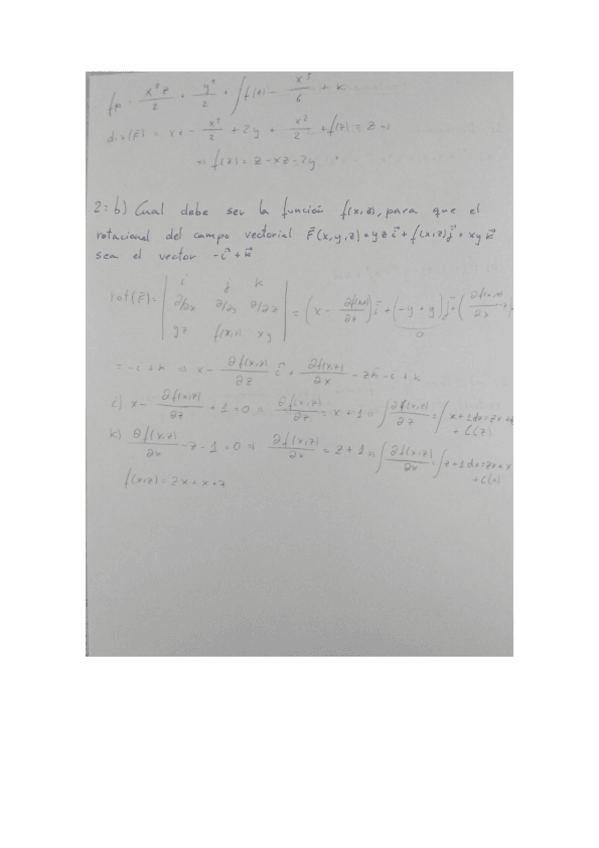 fp = x²z/2 + y²/2 + ∫f(z) - x³/6 + k
div(F) = xz - x²/2 + 2y + x²/2 + f(z) = z ⇒
⇒ f(z) = z - xz - 2y
2: b) Cual debe ser la función f(x,z), para que el
rotacional del campo vectorial F⃗(x,y,z) = yz i⃗ + f(x,z) j⃗ + xy k⃗
sea el vector -i⃗ + k⃗
rot(F⃗) = | i j k ; ∂/∂x ∂/∂y ∂/∂z ; yz f(x,z) xy | = (x - ∂f(x,z)/∂z) i⃗ + (-y + y) j⃗ + (∂f(x,z)/∂x - z)
0
= -i + k ⇒ x - ∂f(x,z)/∂z i⃗ + ∂f(x,z)/∂x - zk = -i + k
i) x - ∂f(x,z)/∂z + 1 = 0 ⇒ ∂f(x,z)/∂z = x + 1 ⇒ ∫∂f(x,z)/∂z = ∫x + 1 dz = zx + z
+ C(z)
k) ∂f(x,z)/∂x - z - 1 = 0 ⇒ ∂f(x,z)/∂x = z + 1 ⇒ ∫∂f(x,z)/∂x = ∫z + 1 dx = zx + x
+ C(x)
f(x,z) = zx + x + z